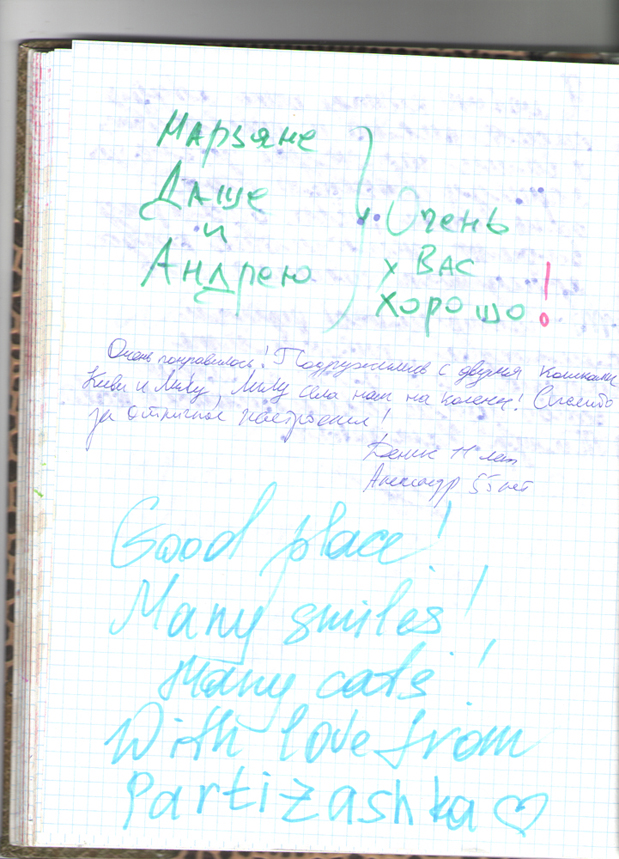 Марьяне
Даше
и
Андрею
Очень
у Вас
хорошо!
Очень понравилось! Подружились с двумя кошками
Киви и Милу, Милу села нам на колени! Спасибо
за отличное настроение!
Денис 11 лет
Александр 55 лет
Good place!
Many smiles!
Many cats!
With love from
Partizashka ♡